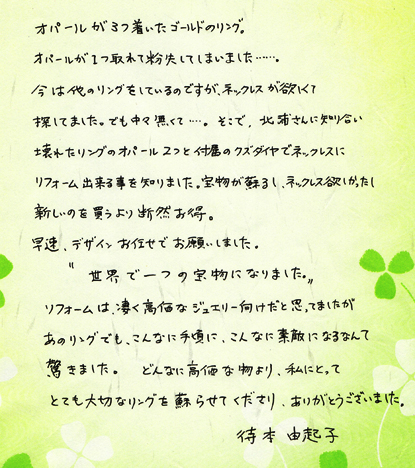 オパールが3つ着いたゴールドのリング。
オパールが1つ取れて紛失してしまいました……。
今は他のリングをしているのですが、ネックレスが欲しくて
探してました。でも中々無くて…。そこで、北浦さんに知り合い
壊れたリングのオパール2つと付属のクズダイヤでネックレスに
リフォーム出来る事を知りました。宝物が蘇るし、ネックレス欲しかったし
新しいのを買うより断然お得。
早速、デザインお任せでお願いしました。
"世界で一つの宝物になりました。"
リフォームは、凄く高価なジュエリー向けだと思ってましたが
あのリングでも、こんなに手頃に、こんなに素敵になるなんて
驚きました。 どんなに高価な物より、私にとって
とても大切なリングを蘇らせてくださり、ありがとうございました。
待本 由起子